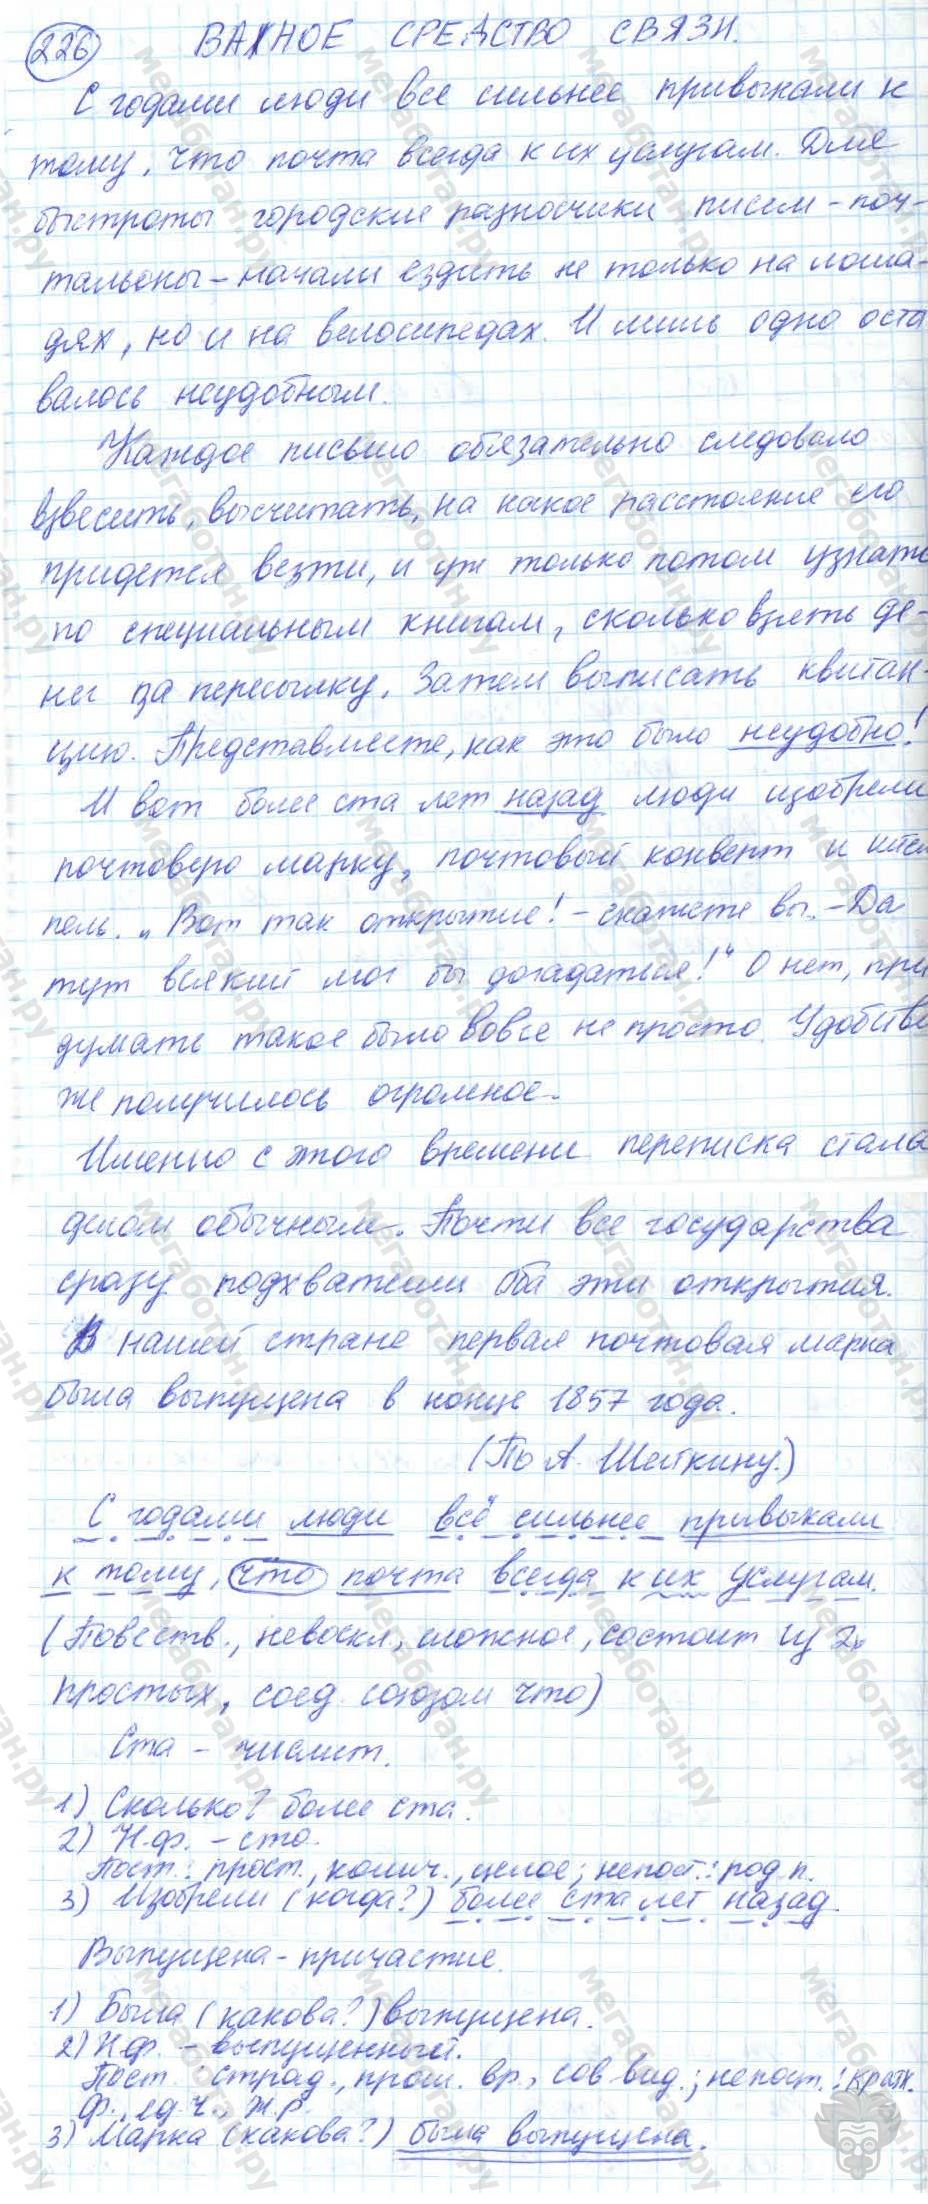 226 ВАЖНОЕ СРЕДСТВО СВЯЗИ.
С годами люди все сильнее привыкали к
тому, что почта всегда к их услугам. Для
быстроты городские разносчики писем - поч-
тальоны - начали ездить не только на лоша-
дях, но и на велосипедах. И лишь одно оста
валось неудобным.
Каждое письмо обязательно следовало
взвесить, высчитать, на какое расстояние его
придется везти, и уж только потом узнать
по специальным книгам, сколько взять де-
нег за пересылку. Затем выписать квитан-
цию. Представляете, как это было неудобно!
И вот более ста лет назад люди изобрели
почтовую марку, почтовый конверт и штем
пель. „Вот так открытие! - скажете вы. - Да
тут всякий мог бы догадаться!" О нет, при
думать такое было вовсе не просто. Удобство
же получилось огромное.
Именно с этого времени переписка стала
делом обычным. Почти все государства
сразу подхватили оба эти открытия.
В нашей стране первая почтовая марка
была выпущена в конце 1857 года.
(По А. Шейкину.)
С годами люди всё сильнее привыкали
к тому, что почта всегда к их услугам.
(Повеств., невоскл, сложное, состоит из 2х
простых, соед. союзом что)
Ста - числит.
1) Сколько? более ста.
2) Н.ф. - сто.
Пост.: прост., колич., целое; непост.: род.п.
3) Изобрели (когда?) более ста лет назад.
Выпущена - причастие.
1) Была (какова?) выпущена.
2) Н.ф. - выпущенный.
Пост. : страд., прош. вр., сов вид.; непост.: кратк.
ф., ед.ч., ж.р.
3) Марка (какова?) была выпущена.
мегаботан.ру